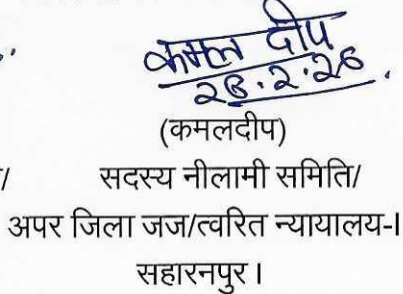 कमल दीप
28.2.26
(कमलदीप)
सदस्य नीलामी समिति/
अपर जिला जज/त्वरित न्यायालय-I
सहारनपुर।